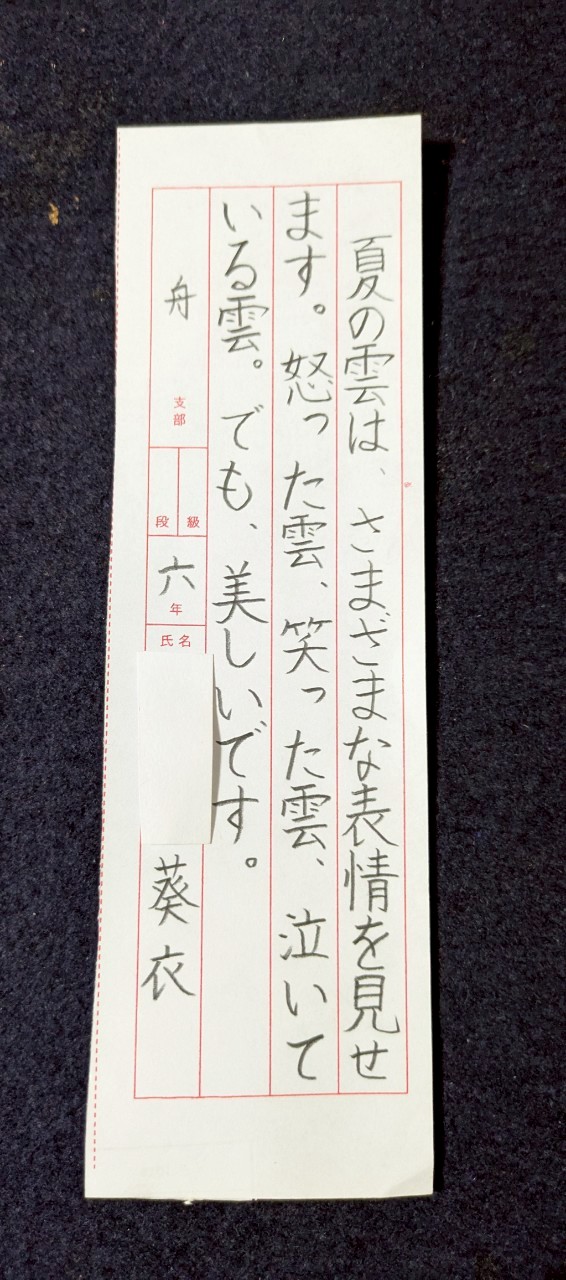 夏の雲は、さまざまな表情を見せ
ます。怒った雲、笑った雲、泣いて
いる雲。でも、美しいです。
舟
支部
段
級
六年
氏名
葵衣